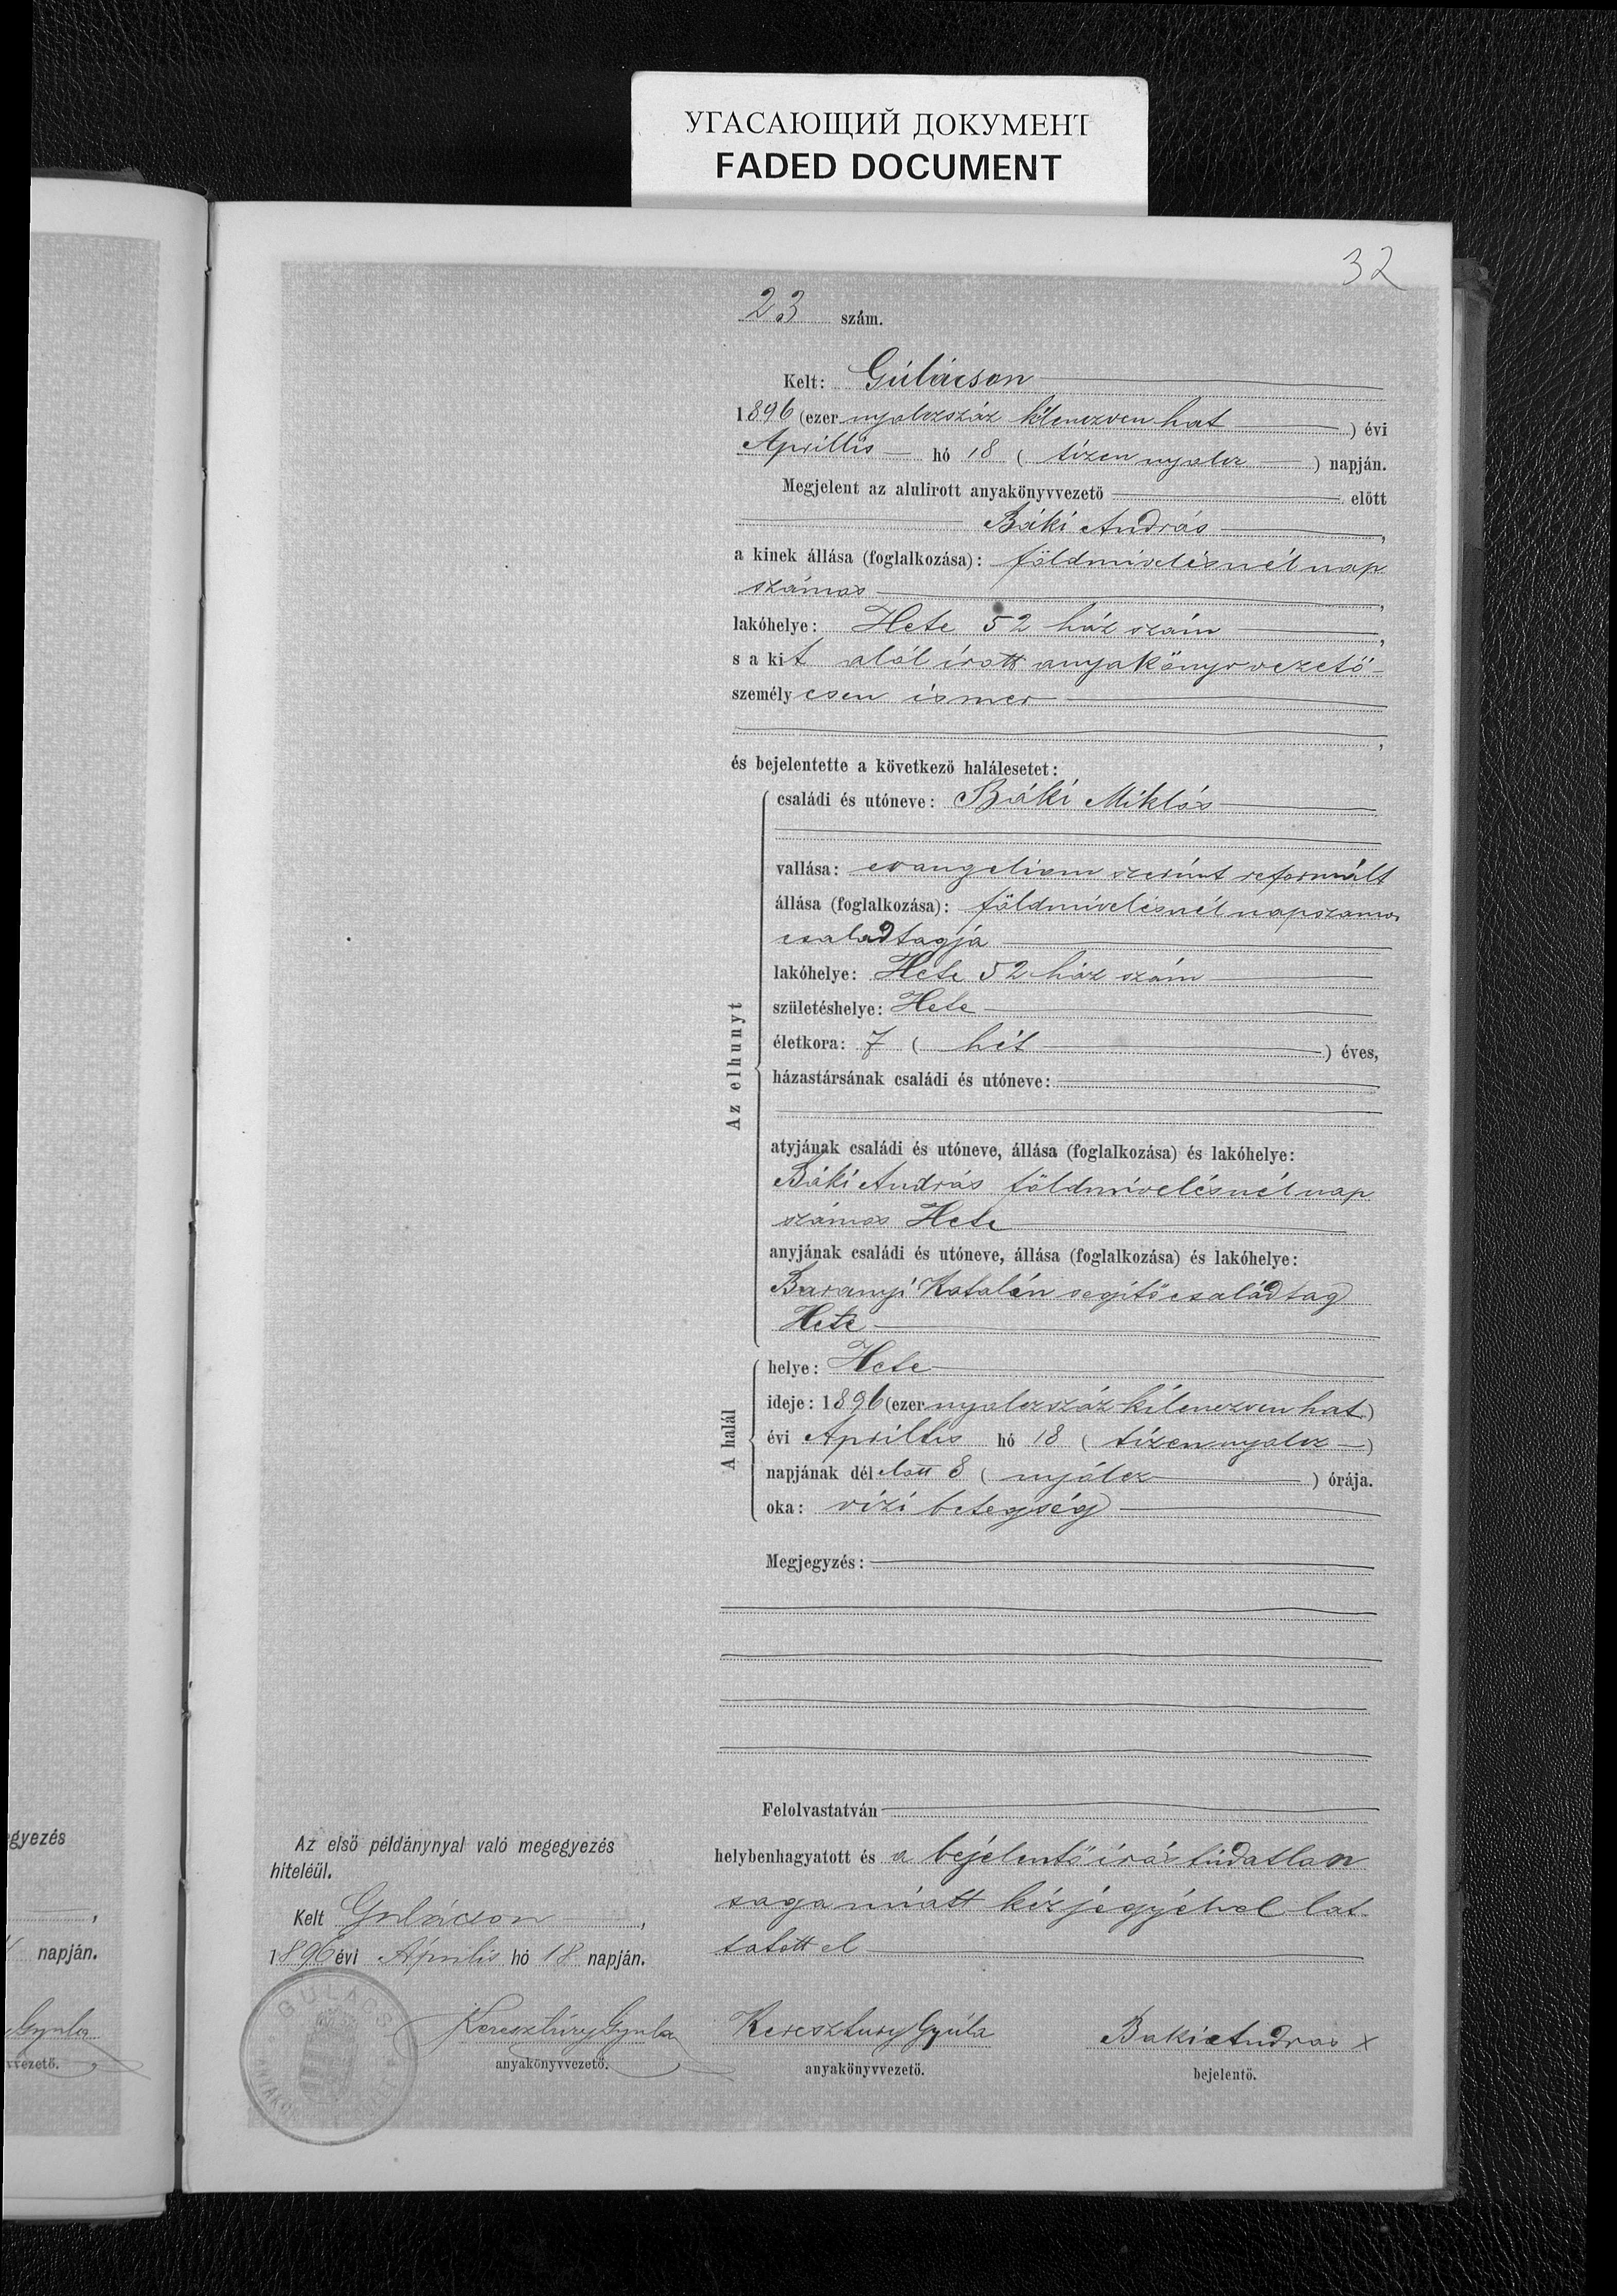 УГАСАЮЩИЙ ДОКУМЕНТ
FADED DOCUMENT
32
23 szám.
Kelt: Gúlácson
1896 (ezer nyolczszáz kilenczven hat) évi
Aprillis hó 18 (tizen nyolcz) napján.
Megjelent az alulirott anyakönyvvezető előtt
Báki András,
a kinek állása (foglalkozása): földmivelésnél nap
számos,
lakóhelye: Hete 52 ház szám,
s a kit alól írott anyakönyvvezető
személyesen ismer
,
és bejelentette a következő halálesetet:
Az elhunyt
családi és utóneve: Báki Miklós
vallása: evangeliom szerint reformált
állása (foglalkozása): földmivelésnél napszamos
csaladtagja
lakóhelye: Hete 52 ház szám
születéshelye: Hete
életkora: 7 (hét) éves,
házastársának családi és utóneve:
atyjának családi és utóneve, állása (foglalkozása) és lakóhelye:
Báki András földmivelésnél nap
számos Hete
anyjának családi és utóneve, állása (foglalkozása) és lakóhelye:
Baranyi Katalin segitő családtag
Hete
A halál
helye: Hete
ideje: 1896 (ezer nyolczszáz kilenczvenhat)
évi Aprillis hó 18 (tizennyolcz)
napjának délelőtt 8 (nyólcz) órája.
oka: vizi betegség
Megjegyzés:
Felolvastatván
helybenhagyatott és a bejelentő írás túdatlan
saga miatt kézjegyével lat
tatott el
Keresztury Gyúla
anyakönyvvezető.
Baki Andras x
bejelentő.
Az első példánynyal való megegyezés
hiteléül.
Kelt Gulácson,
1896 évi Április hó 18 napján.
Keresztúry Gyula
anyakönyvvezető.
GULÁCS
egyezés
,
napján.
Gyula
vvezető.